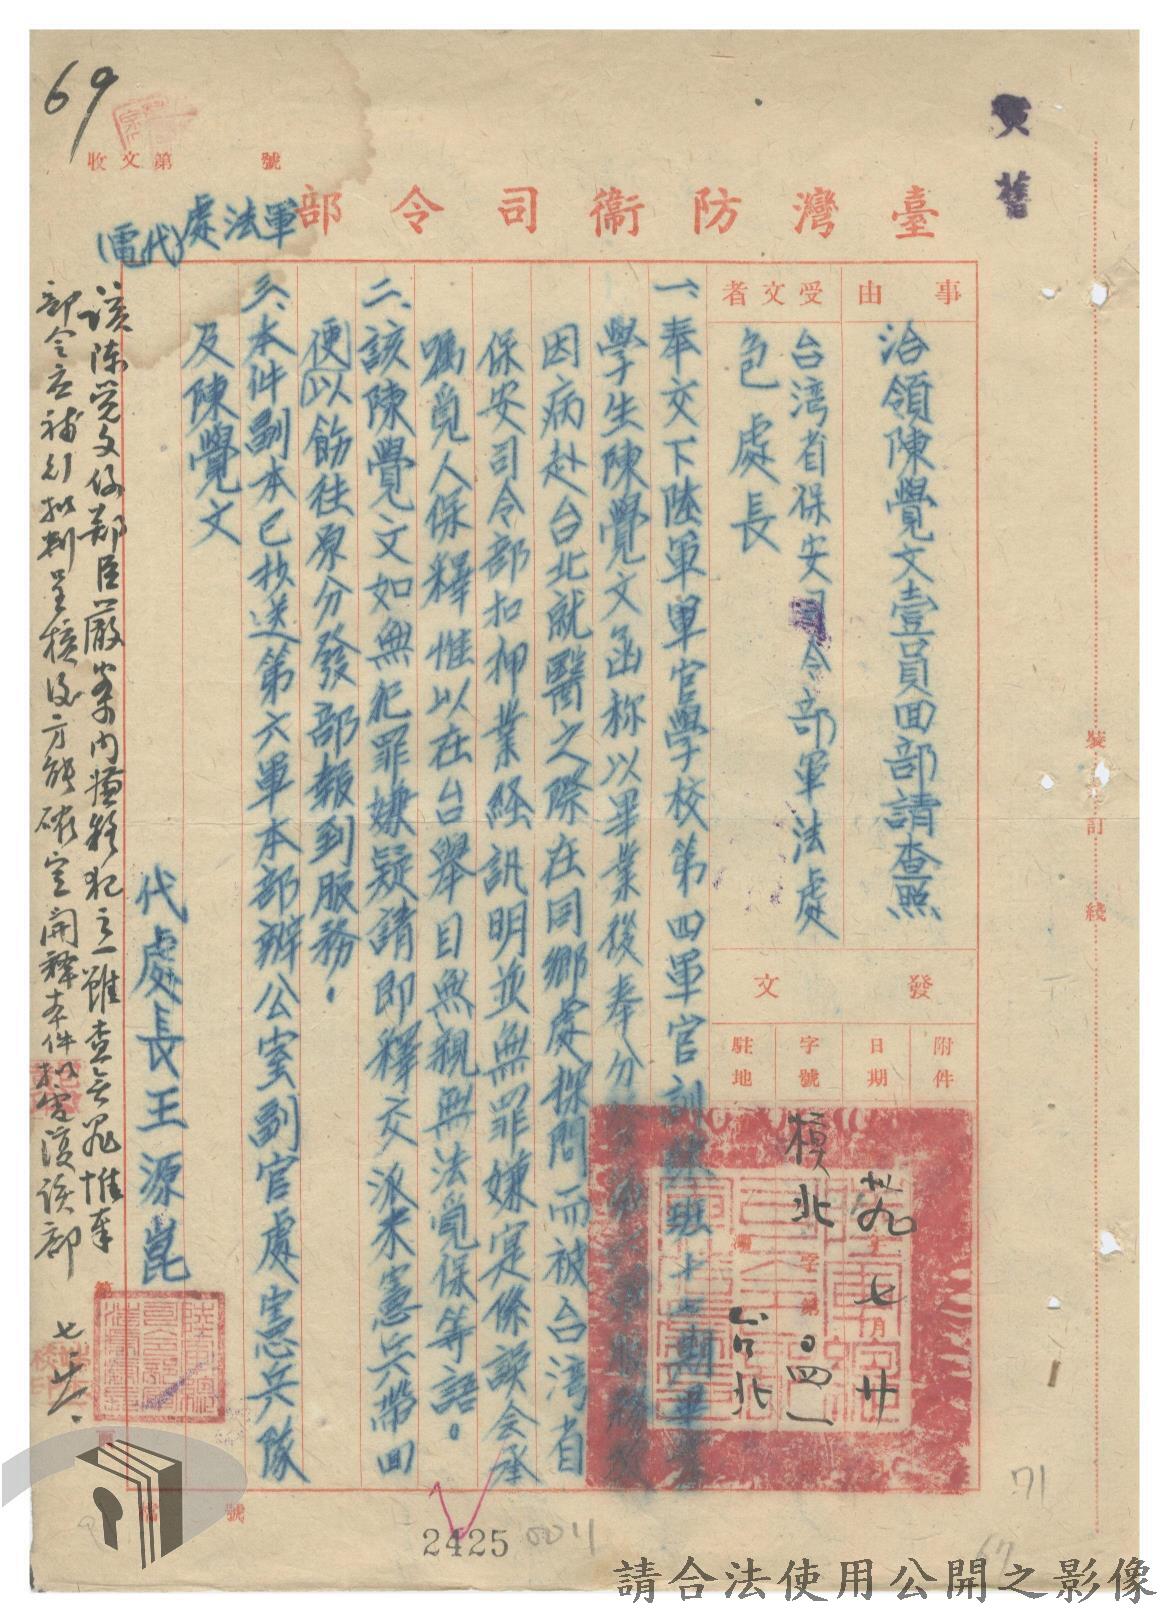 69
收文第 號
臺灣防衞司令部軍法處(代電)
事由
洽領陳覺文壹員回部請查照
受文者
台湾省保安司令部軍法處
包處長
發文
附件
日期
卅九年七月廿
字號
北字第0四一
駐地
台北
一、奉交下陸軍軍官學校第四軍官訓練班十七期畢業
學生陳覺文函称以畢業後奉分
因病赴台北就醫之際在同鄉處探問而被台湾省
保安司令部扣押業經訊明並無罪嫌寔係誤会承
囑覓人保釋惟以在台舉目無親無法覓保等語。
二、該陳覺文如無犯罪嫌疑請即釋交派来憲兵帶回
便以飭往原分發部報到服務。
三、本件副本已抄送第六軍本部辦公室副官處憲兵隊
及陳覺文
代處長王源崑
該陳覺文係鄭臣嚴案内嫌疑犯之一雖查無罪惟奉
部令应補行批判呈核後方能確定開釋本件拟寄復該部
裝訂綫
第
頁
檔號
2425
0041
71
67
請合法使用公開之影像